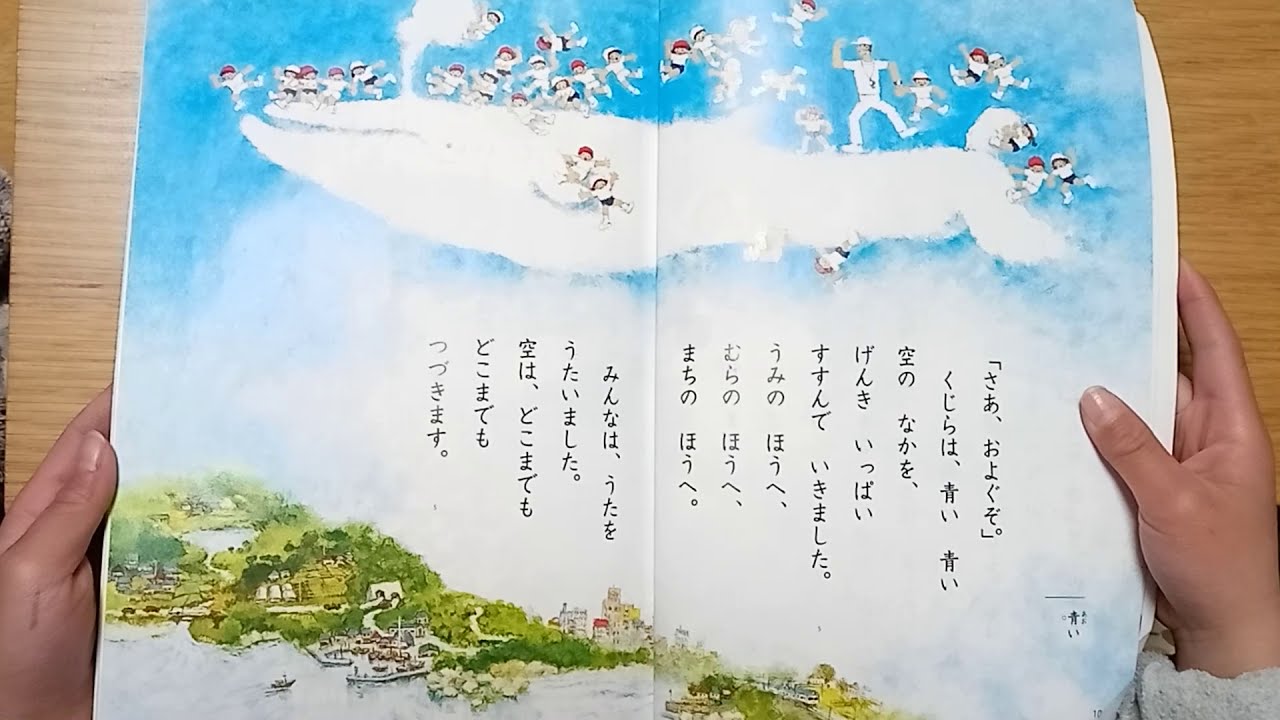 「さあ、およぐぞ。」
くじらは、青い　青い
空の　なかを、
げんき　いっぱい
すすんで　いきました。
うみの　ほうへ、
むらの　ほうへ、
まちの　ほうへ。
みんなは、うたを
うたいました。
空は、どこまでも
どこまでも
つづきます。
青い
あお
10